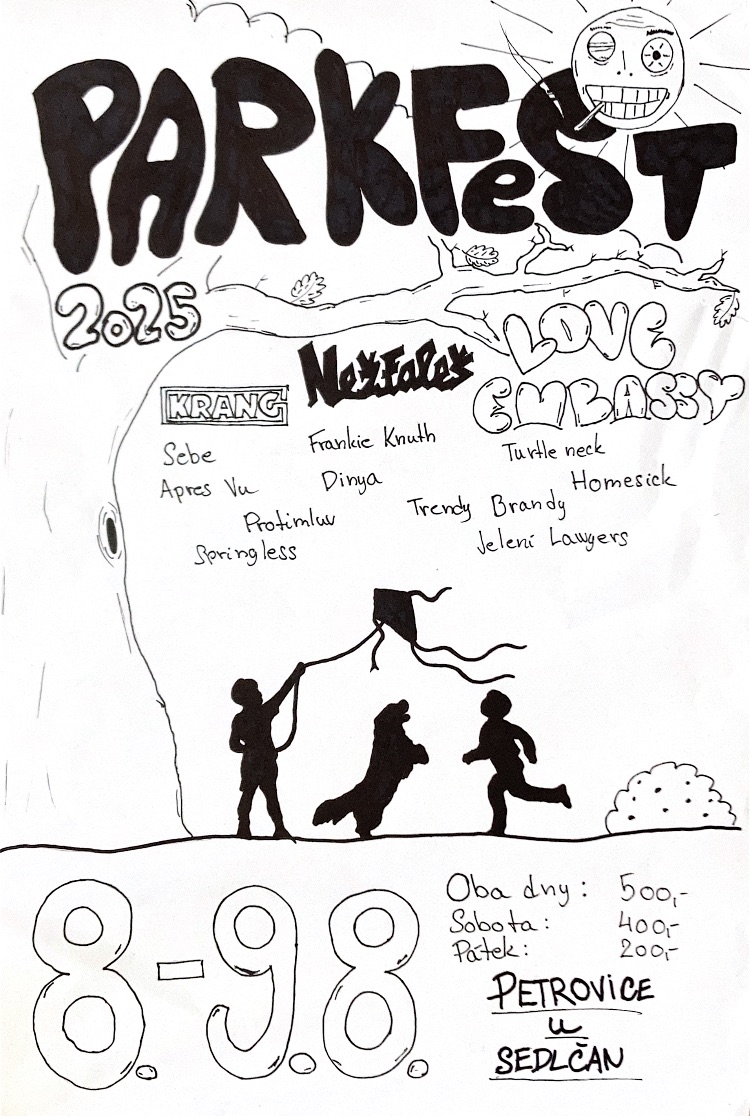 PARKFeST
2025
LOVE
EMBASSY
Nežfaleš
KRANG
Sebe
Frankie Knuth
Turtle neck
Apres Vu
Dinya
Homesick
Protimluv
Trendy Brandy
Springless
Jelení Lawyers
8.-9.8.
Oba dny: 500,-
Sobota: 400,-
Pátek: 200,-
PETROVICE
u
SEDLČAN